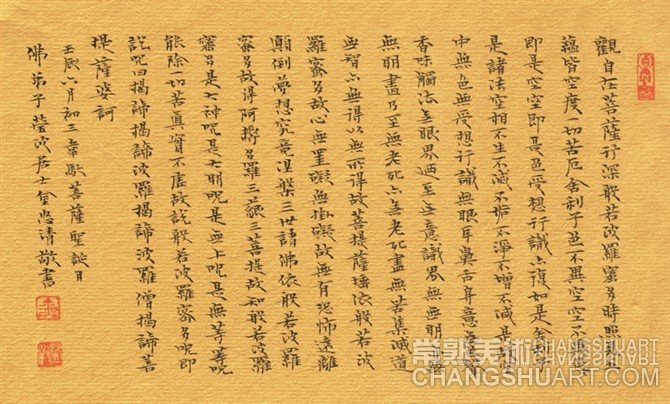 觀自在菩薩行深般若波羅蜜多時照見
蘊皆空度一切苦厄舍利子色不異空空不
即是空空即是色受想行識亦復如是舍利
是諸法空相不生不滅不垢不淨不增不減是
中無色無受想行識無眼耳鼻舌身意
香味觸法無眼界乃至無意識界無無明
無明盡乃至無老死亦無老死盡無苦集滅道
無智亦無得以無所得故菩提薩埵依般若波
羅蜜多故心無罣礙無掛礙故無有恐怖遠離
顛倒夢想究竟涅槃三世諸佛依般若波羅
蜜多故得阿耨多羅三藐三菩提故知般若波羅
蜜多是大神呪是大明呪是無上呪是無等等呪
能除一切苦真實不虛故說般若波羅蜜多呪即
說呪曰揭諦揭諦波羅揭諦波羅僧揭諦菩
提薩婆訶
壬辰六月初三韋馱菩薩聖誕日
佛弟子瑩成居士金忠清敬書
常熟美術
CHANGSHUART
CHANGSHUART.COM